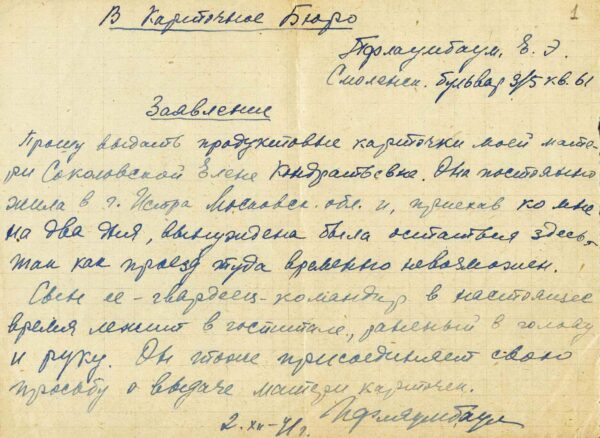 В Карточное Бюро
1
Пфлаумбаум, Е. Э.
Смоленск. бульвар 3/5 кв. 61
Заявление
Прошу выдать продуктовые карточки моей мате-
ри Соколовской Елене Кондратьевне. Она постоянно
жила в г. Истра Московск. обл. и, приехав ко мне
на два дня, вынуждена была остаться здесь,
так как проезд туда временно невозможен.
Сын ее - гвардеец-командир в настоящее
время лежит в госпитале, раненый в голову
и руку. Он тоже присоединяет свою
просьбу о выдаче матери карточек.
2.XII-41г. Пфлаумбаум